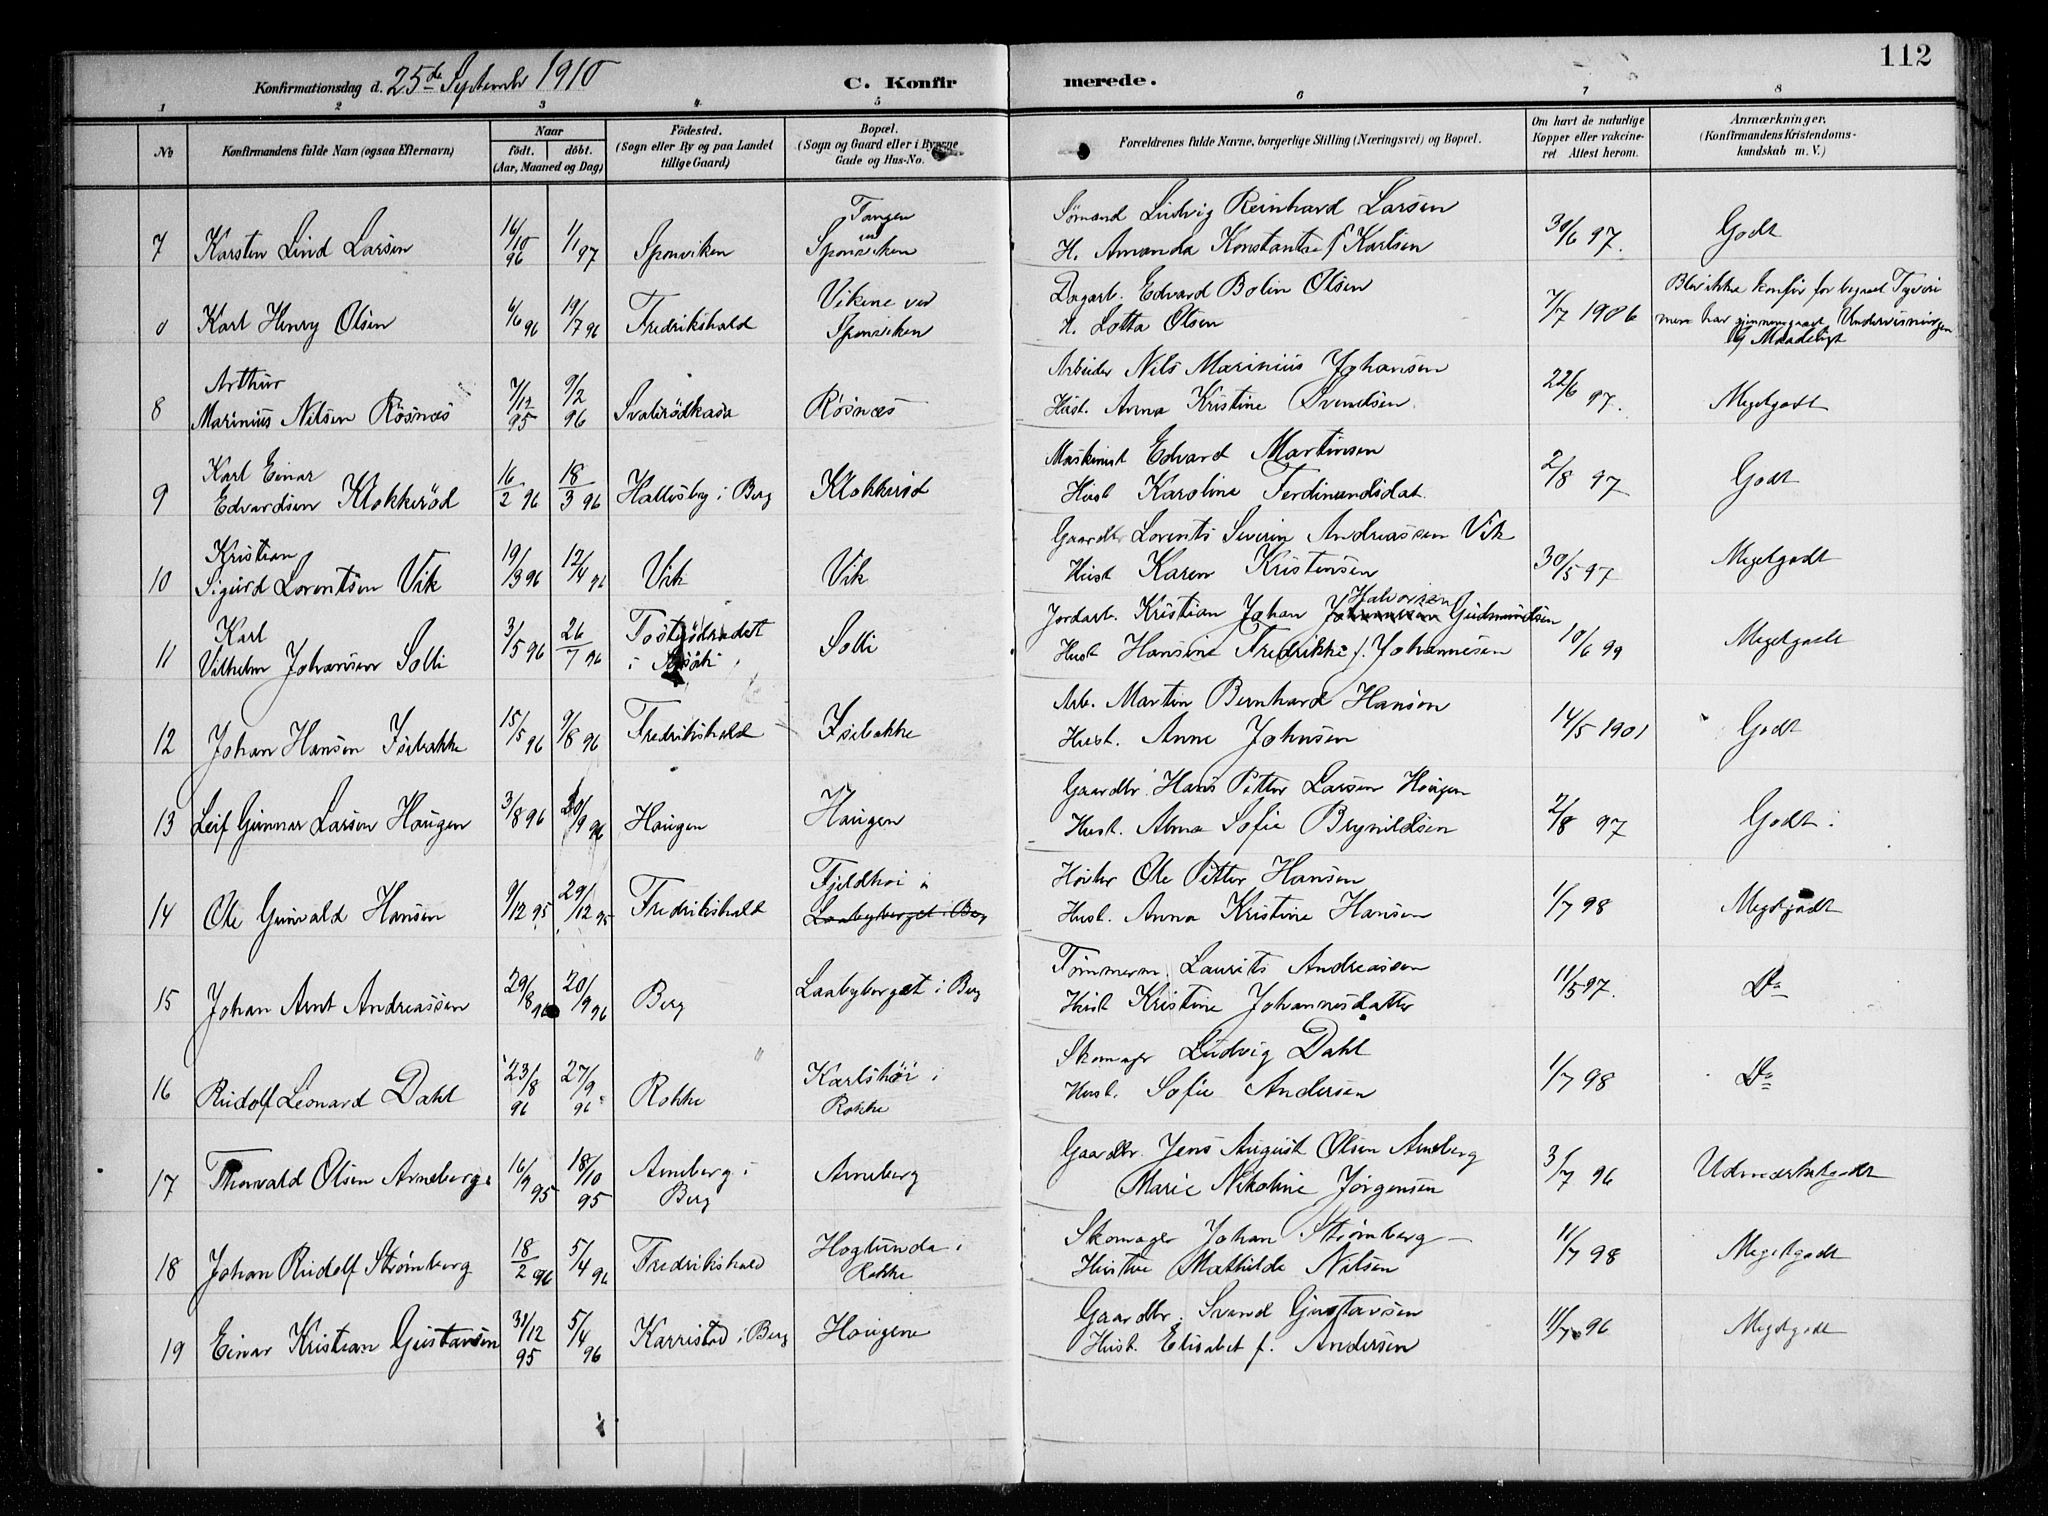 112
Konfirmationsdag d. 25de September 1910 C. Konfir merede.
1 2 3 4 5 6 7 8
No Konfirmandens fulde Navn (ogsaa Efternavn) Naar födt. döbt. (Aar, Maaned og Dag) Födested. (Sogn eller By og paa Landet tillige Gaard) Bopæl. (Sogn og Gaard eller i Byerne Gade og Hus-No. Forældrenes fulde Navne, borgerlige Stilling (Næringsvei) og Bopæl. Om havt de naturlige Kopper eller vakcineret Attest herom. Anmærkninger. (Konfirmandens Kristendomskundskab m. V.)
7 Karsten Lind Larsen 16/10 96 1/1 97 Sponviken Tangen i Sponviken
Sømand Ludvig Reinhard Larsen
H. Amanda Konstantse f Karlsen 30/6 97. Godt
Karl Henry Olsen 6/6 96 19/7 96 Fredrikshald Vikene ved Sponviken
Dagarb. Edvard Bolin Olsen
H. Lotta Olsen 7/7 1906 Blev ikke konfir for begaaet Tyveri
men har gjennemgaaet Undervisningen
Maadeligt
8 Arthur Marinius Nilsen Rösnæs 7/12 95 9/2 96 Svalerödkasa Røsnæs
Arbeider Nils Marinius Johansen
Hust. Anna Kristine Svendsen 22/6 97. Megetgodt
9 Karl Einar Edvardsen Klokkeröd 16/2 96 18/3 96 Hallesby i Berg Klokkeröd
Maskinist Edvard Martinsen
Hust Karoline Ferdinandsdat. 2/8 97 Godt
10 Kristian Sigurd Lorentsen Vik 19/3 96 12/4 96 Vik Vik
Gaardbr Lorents Severin Andreassen Vik
Hust Karen Kristensen 30/5 97 Megetgodt
11 Karl Vilhelm Johansen Solli 3/5 96 26/7 96 Solli
Jordarb. Kristian Johan Halvorsen Gudmundsen
Hust Hansine Fredrikke f. Johannesen 10/6 99 Megetgodt
12 Johan Hansen Isebakke 15/5 96 9/8 96 Fredrikshald Isebakke
Arb. Martin Bernhard Hansen
Hust. Anne Johnsen 14/5 1901 Godt
13 Leif Gunnar Larsen Haugen 3/8 96 20/9 96 Haugen Haugen
Gaardbr. Hans Petter Larsen Haugen
Hust. Alma Sofie Brynildsen 2/8 97 Godt
14 Ole Gunvald Hansen 9/12 95 29/12 95 Fredrikshald Fjeldhøi i Laabyberget i Berg
Ole Petter Hansen
Hust. Anna Kristine Hansen 1/7 98 Megetgodt
15 Johan Arnt Andreassen 29/8 96 20/9 96 Berg Laabyberget i Berg
Tømmerm. Laurits Andreassen
Hust Kristine Johannesdatter 11/5 97. Do
16 Rudolf Leonard Dahl 23/8 96 27/9 96 Rokke Karlshøi i Rokke
Skomager Ludvig Dahl
Hust. Sofie Andersen 1/7 98 Do
17 Thorvald Olsen Arneberg 16/9 95 18/10 95 Arneberg i Berg Arneberg
Gaardbr. Jens August Olsen Arneberg
Marie Nikoline Jørgensen 3/7 96 Udmærketgodt
18 Johan Rudolf Strømberg 18/2 96 5/4 96 Fredrikshald Høglunda i Rokke
Skomager Johan Strømberg
Hustru Mathilde Nilsen 11/7 98 Megetgodt
19 Einar Kristian Gustavsen 31/12 95 5/4 96 Karrestad i Berg Haugene
Gaardbr. Svend Gustavsen
Hust. Elisabet f. Andersen 11/7 96 Megetgodt